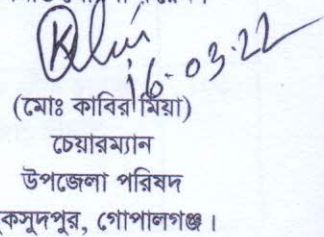 16-03-22
(মোঃ কাবির মিয়া)
চেয়ারম্যান
উপজেলা পরিষদ
কসুদপুর, গোপালগঞ্জ।